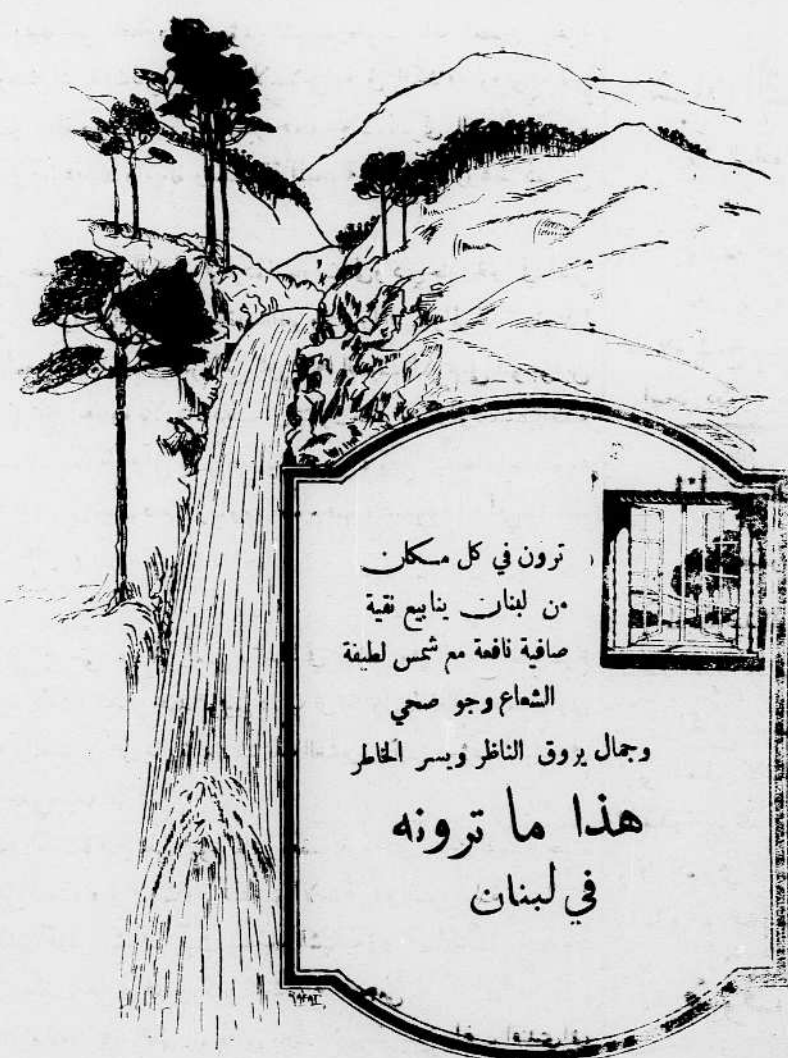 ترون في كل مكان
من لبنان ينابيع نقية
صافية نافعة مع شمس لطيفة
الشعاع وجو صحي
وجمال يروق الناظر ويسر الخاطر
هذا ما ترونه
في لبنان